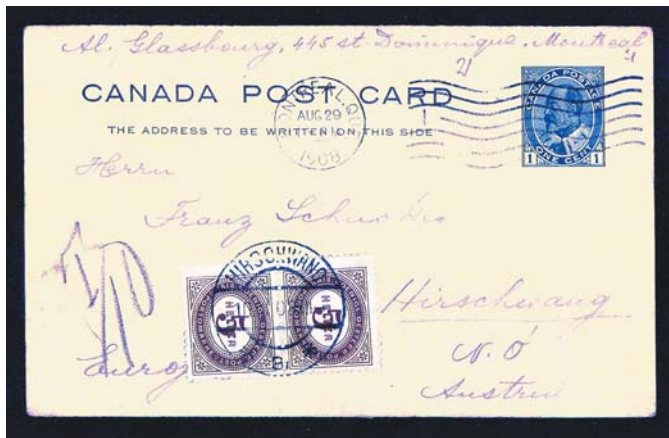 Al. Glassbourg, 445 st. Dominique. Montreal
CANADA POST CARD
THE ADDRESS TO BE WRITTEN ON THIS SIDE
MONTREAL. QUE
AUG 29
1908
CANADA POSTAGE
1 ONE CENT 1
Herrn
Franz
Hirschwang
N. Ö
Austria
HIRSCHWANG
5 HELLER
5 HELLER